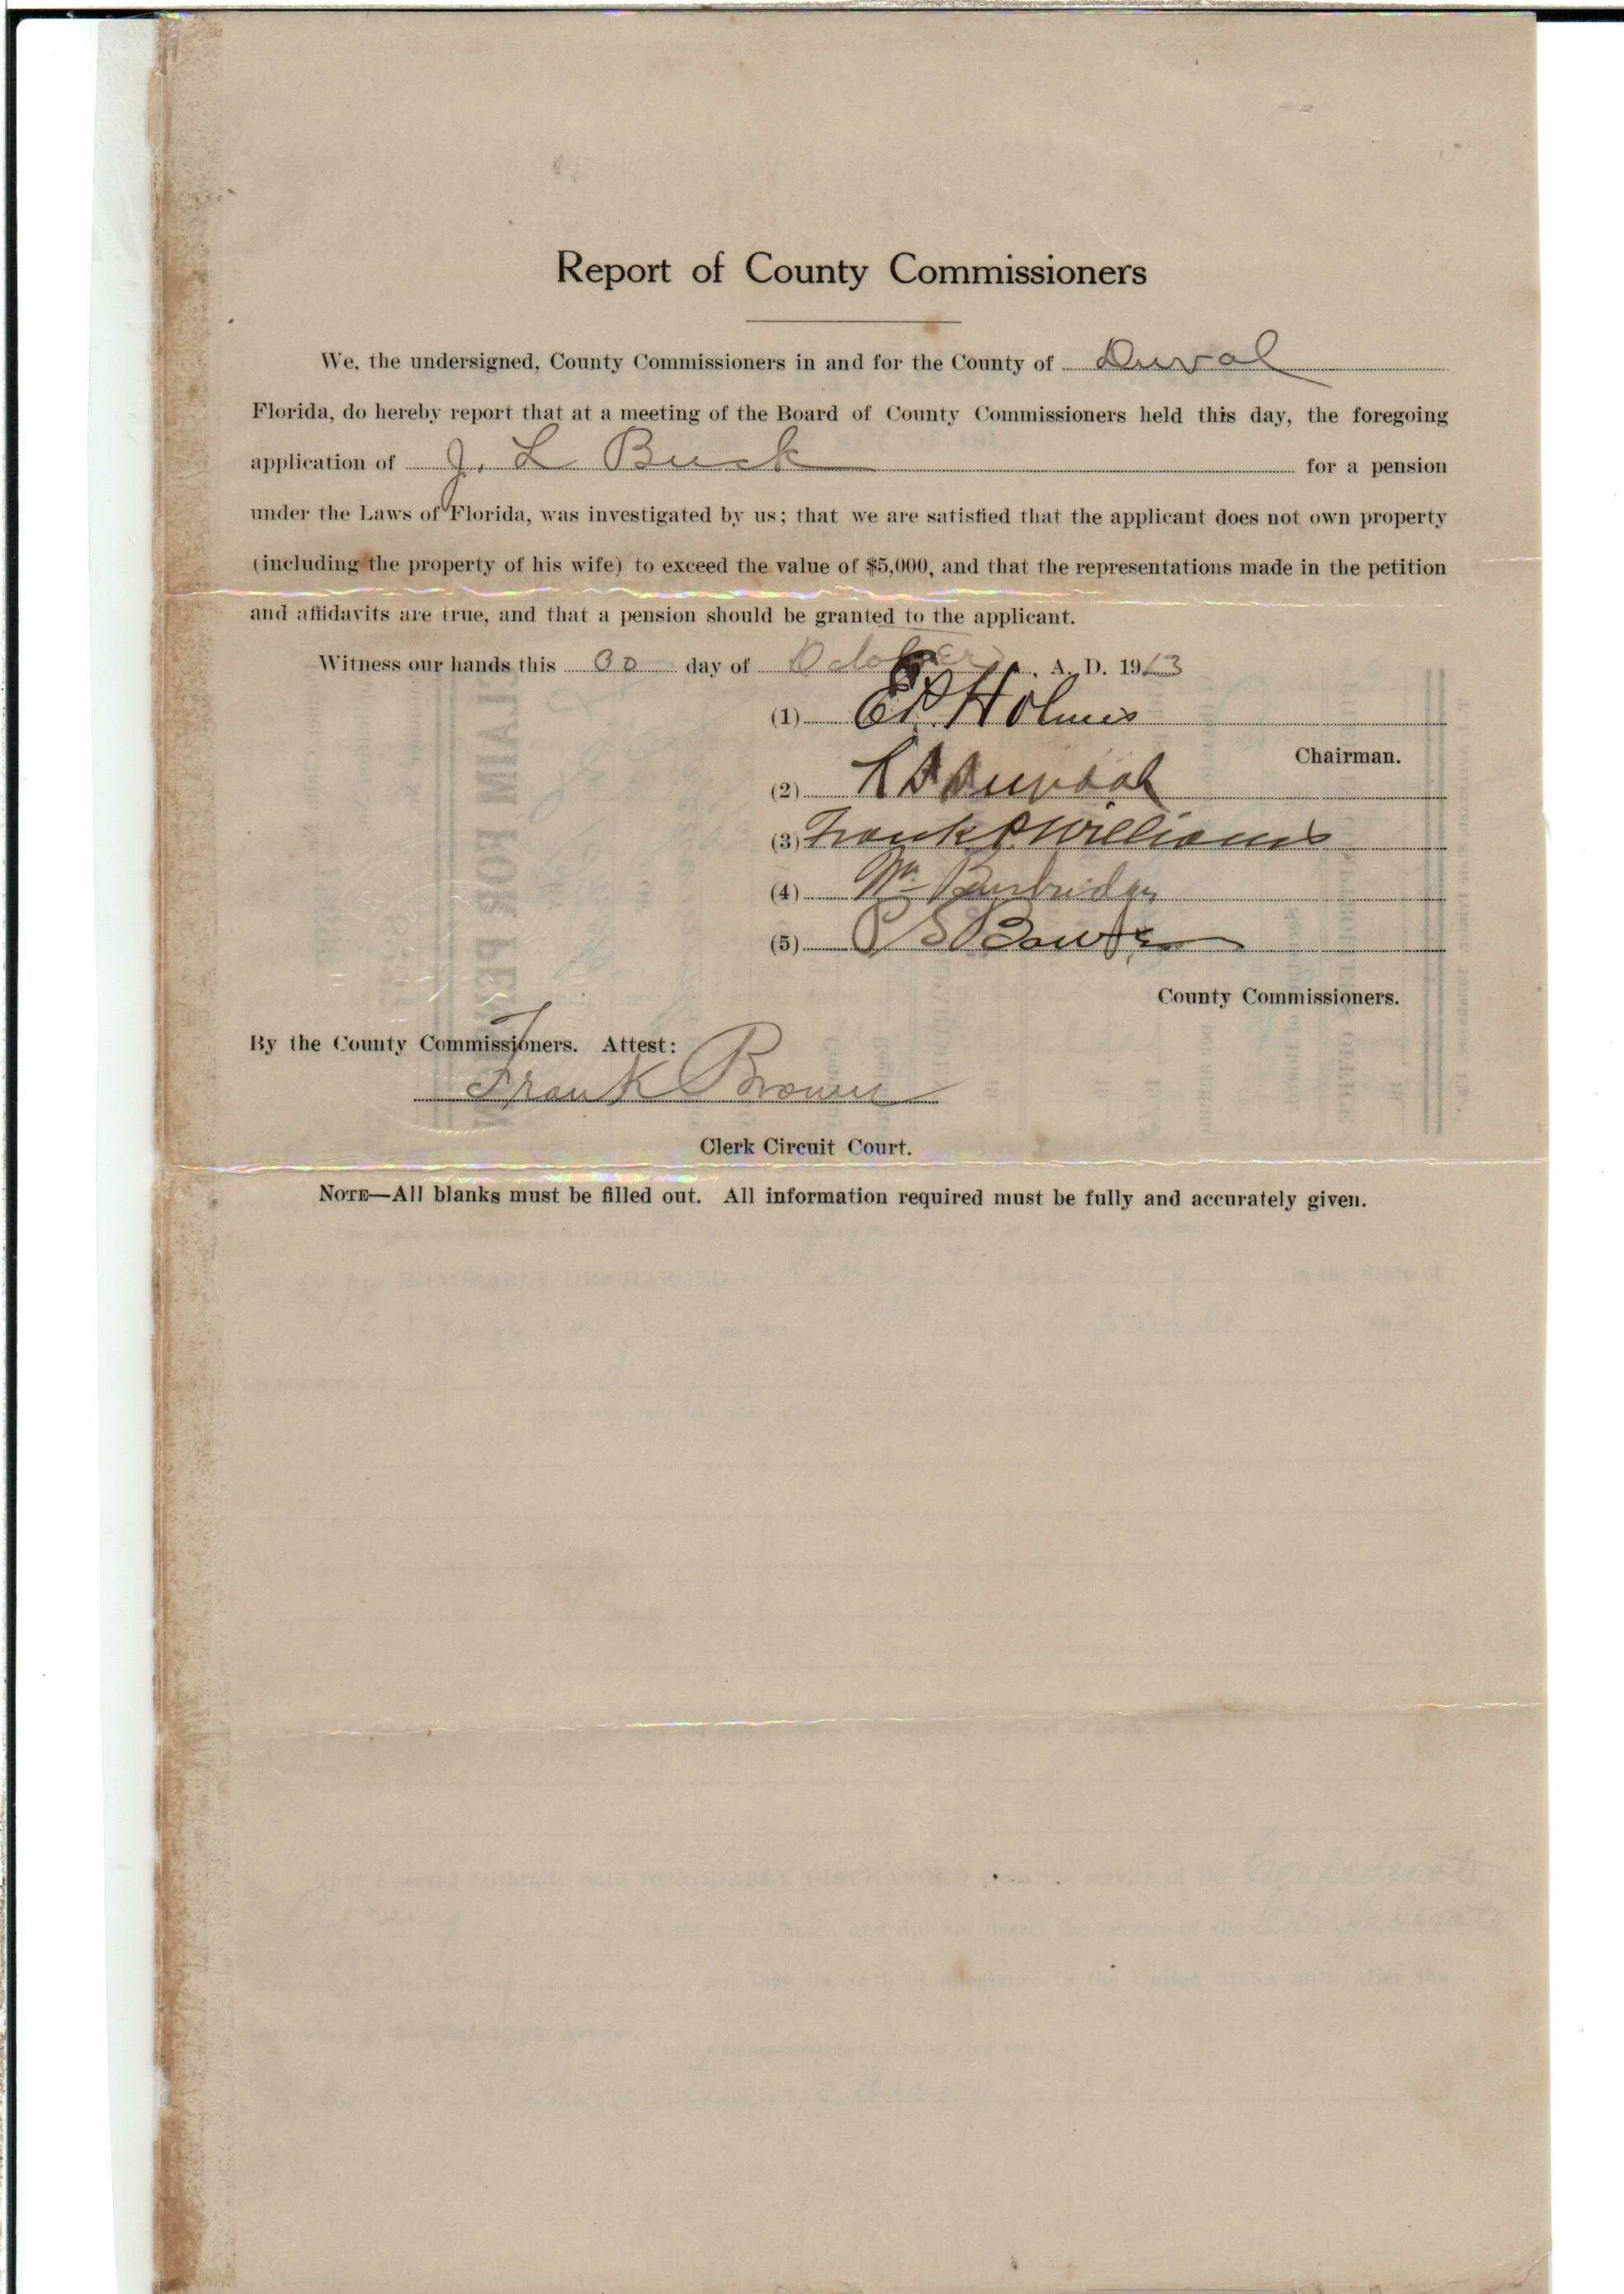 Report of County Commissioners
We, the undersigned, County Commissioners in and for the County of Duval
Florida, do hereby report that at a meeting of the Board of County Commissioners held this day, the foregoing
application of J. L Buck for a pension
under the Laws of Florida, was investigated by us; that we are satisfied that the applicant does not own property
(including the property of his wife) to exceed the value of $5,000, and that the representations made in the petition
and affidavits are true, and that a pension should be granted to the applicant.
Witness our hands this 30 day of October, A. D. 1913
(1) Holmes
Chairman.
(2)
(3) Frank P Williams
(4) Wm Burbridge
(5)
County Commissioners.
By the County Commissioners. Attest:
Frank Brown
Clerk Circuit Court.
NOTE—All blanks must be filled out. All information required must be fully and accurately given.